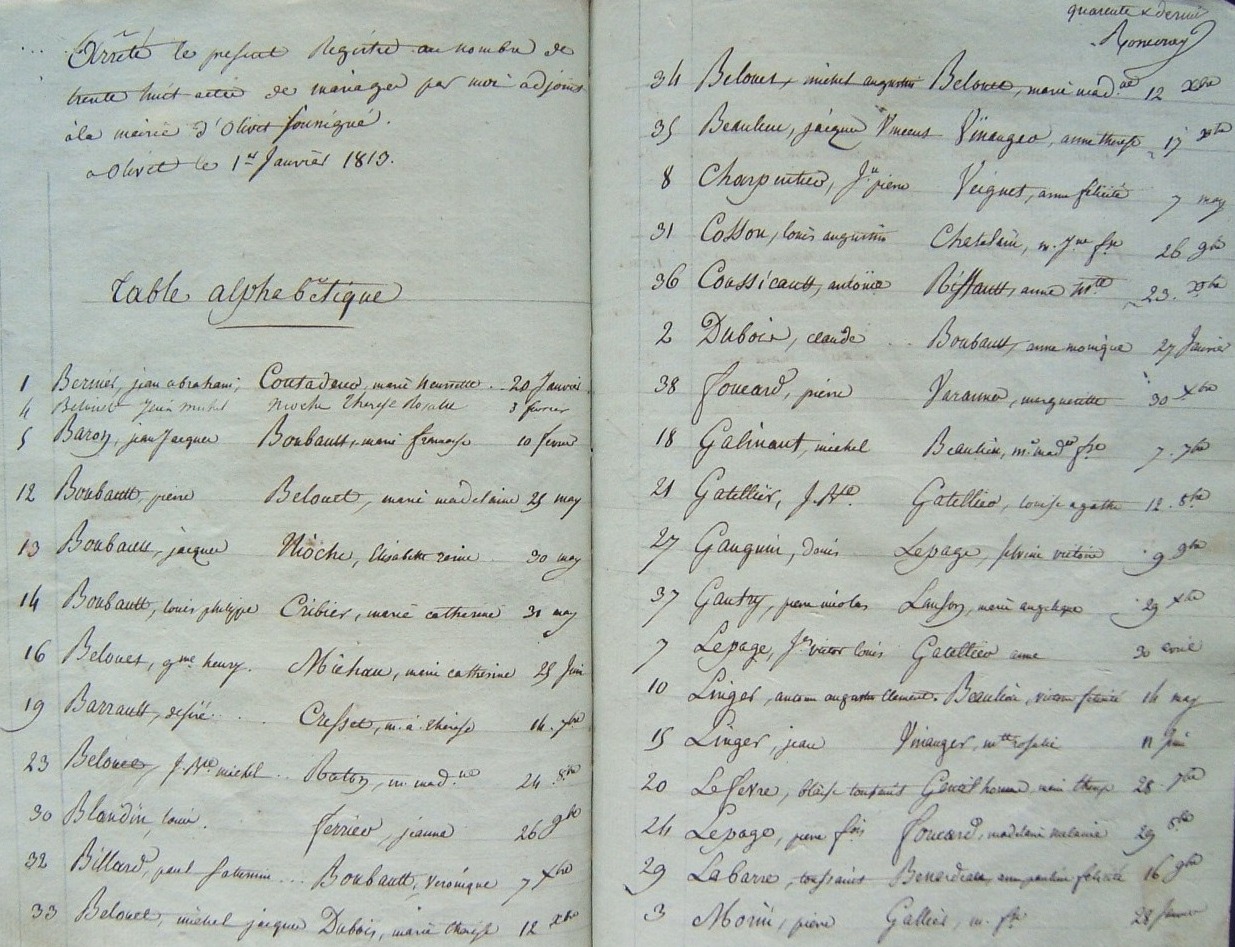 Arrêté le present Registre au nombre de
trente huit actes de mariages par moi adjoint
à la mairie d'Olivet soussigné.
a Olivet le 1er Janvier 1813.
Table alphabétique
1 Bernier, jean abraham, Coutadeur, marie henriette .. 20 Janvier
4 Belouet Jean Michel Rioche Therese Rosalie 3 fevrier
5 Baron, jean Jacques Boubault, marie françoise 10 fevrier
12 Boubault, pierre Belouet, marie madelaine 25 may
13 Boubault, jacques Rioche, Elisabeth reine 30 may
14 Boubault, louis philippe Cribier, marie catherine 31 may
16 Belouet, gme henry. Michau, marie catherine 25 Juin
19 Barrault, desiré . . . Cresset, m. a. therese 14. 7bre
23 Belouet, J. Bte michel .. Raton, m. mad.ne 24 8bre
30 Blandin, louis. ferrier, jeanne 26 9bre
32 Billard, paul saturnin ... Boubault, Veronique 7 Xbre
33 Belouet, michel jacques Dubois, marie therese 12 xbre
quarente & dernier
34 Belouet, michel augustin Belouet, marie mad.ne 12 xbre
35 Beaulieu, jacques Vincent Vinauger, anne therese 17 xbre
8 Charpentier, J.n pierre Veignet, anne felicité 7 may
31 Cosson, louis augustin Chatelain, m. Jne fse 26 9bre
36 Coussicault, antoine Riffault, anne 23. xbre
2 Dubois, claude .. Boubault, anne monique 27 Janvier
38 foucard, pierre Varanne, marguerite 30 xbre
18 Galinaut, michel Beaulieu, me madne fse 7. 7bre
21 Gatellier, J. Bte. Gatellier, louise agathe 12. 8bre
27 Gauguin, denis Lepage, silvine victoire 9 9bre
37 Gautry, pierre nicolas Lanson, marie angelique 29 xbre
7 Lepage, Jn victor louis Gatellier anne 30 avril
10 Linger, augustin clement. Beaulieu, victoire felicité 14 may
15 Linger, jean Vinauger, mtte rosalie 11 Juin
20 Lefevre, blaise toussaint Genilhomme, marie therese 28 7bre
24 Lepage, pierre fois foucard, madelaine melanie 29 8bre
29 Labarre, toussaint Benardeau, anne pauline felicité 16 9bre
3 Morin, pierre Gallier, m. fse 28 Janvier